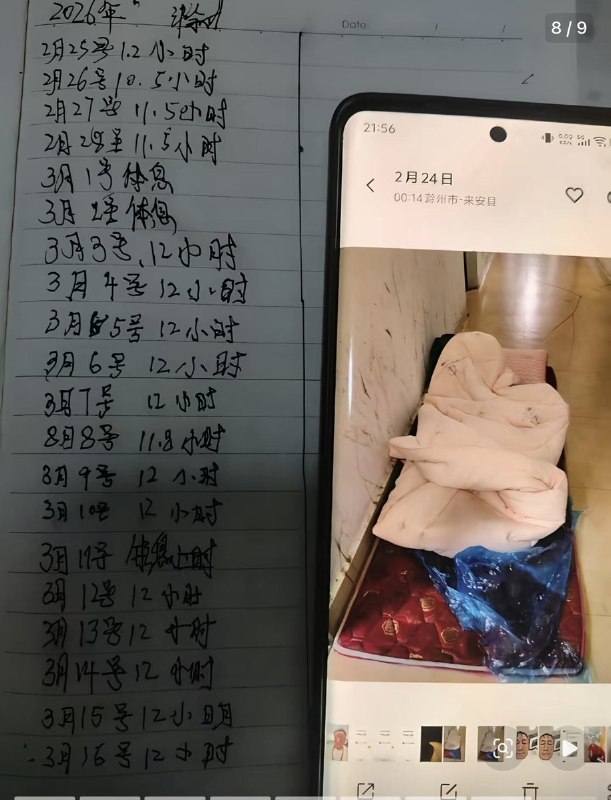 2026年
2月25号 12小时
2月26号 10.5小时
2月27号 11.5小时
2月28号 11.5小时
3月1号 休息
3月2号 休息
3月3号、12小时
3月4号 12小时
3月5号 12小时
3月6号 12小时
3月7号 12小时
8月8号 11.8小时
3月9号 12小时
3月10号 12小时
3月11号 休息
3月12号 12小时
3月13号 12小时
3月14号 12小时
3月15号 12小时
3月16号 12小时
Date:
8/9
21:56
2月24日
00:14 滁州市-来安县